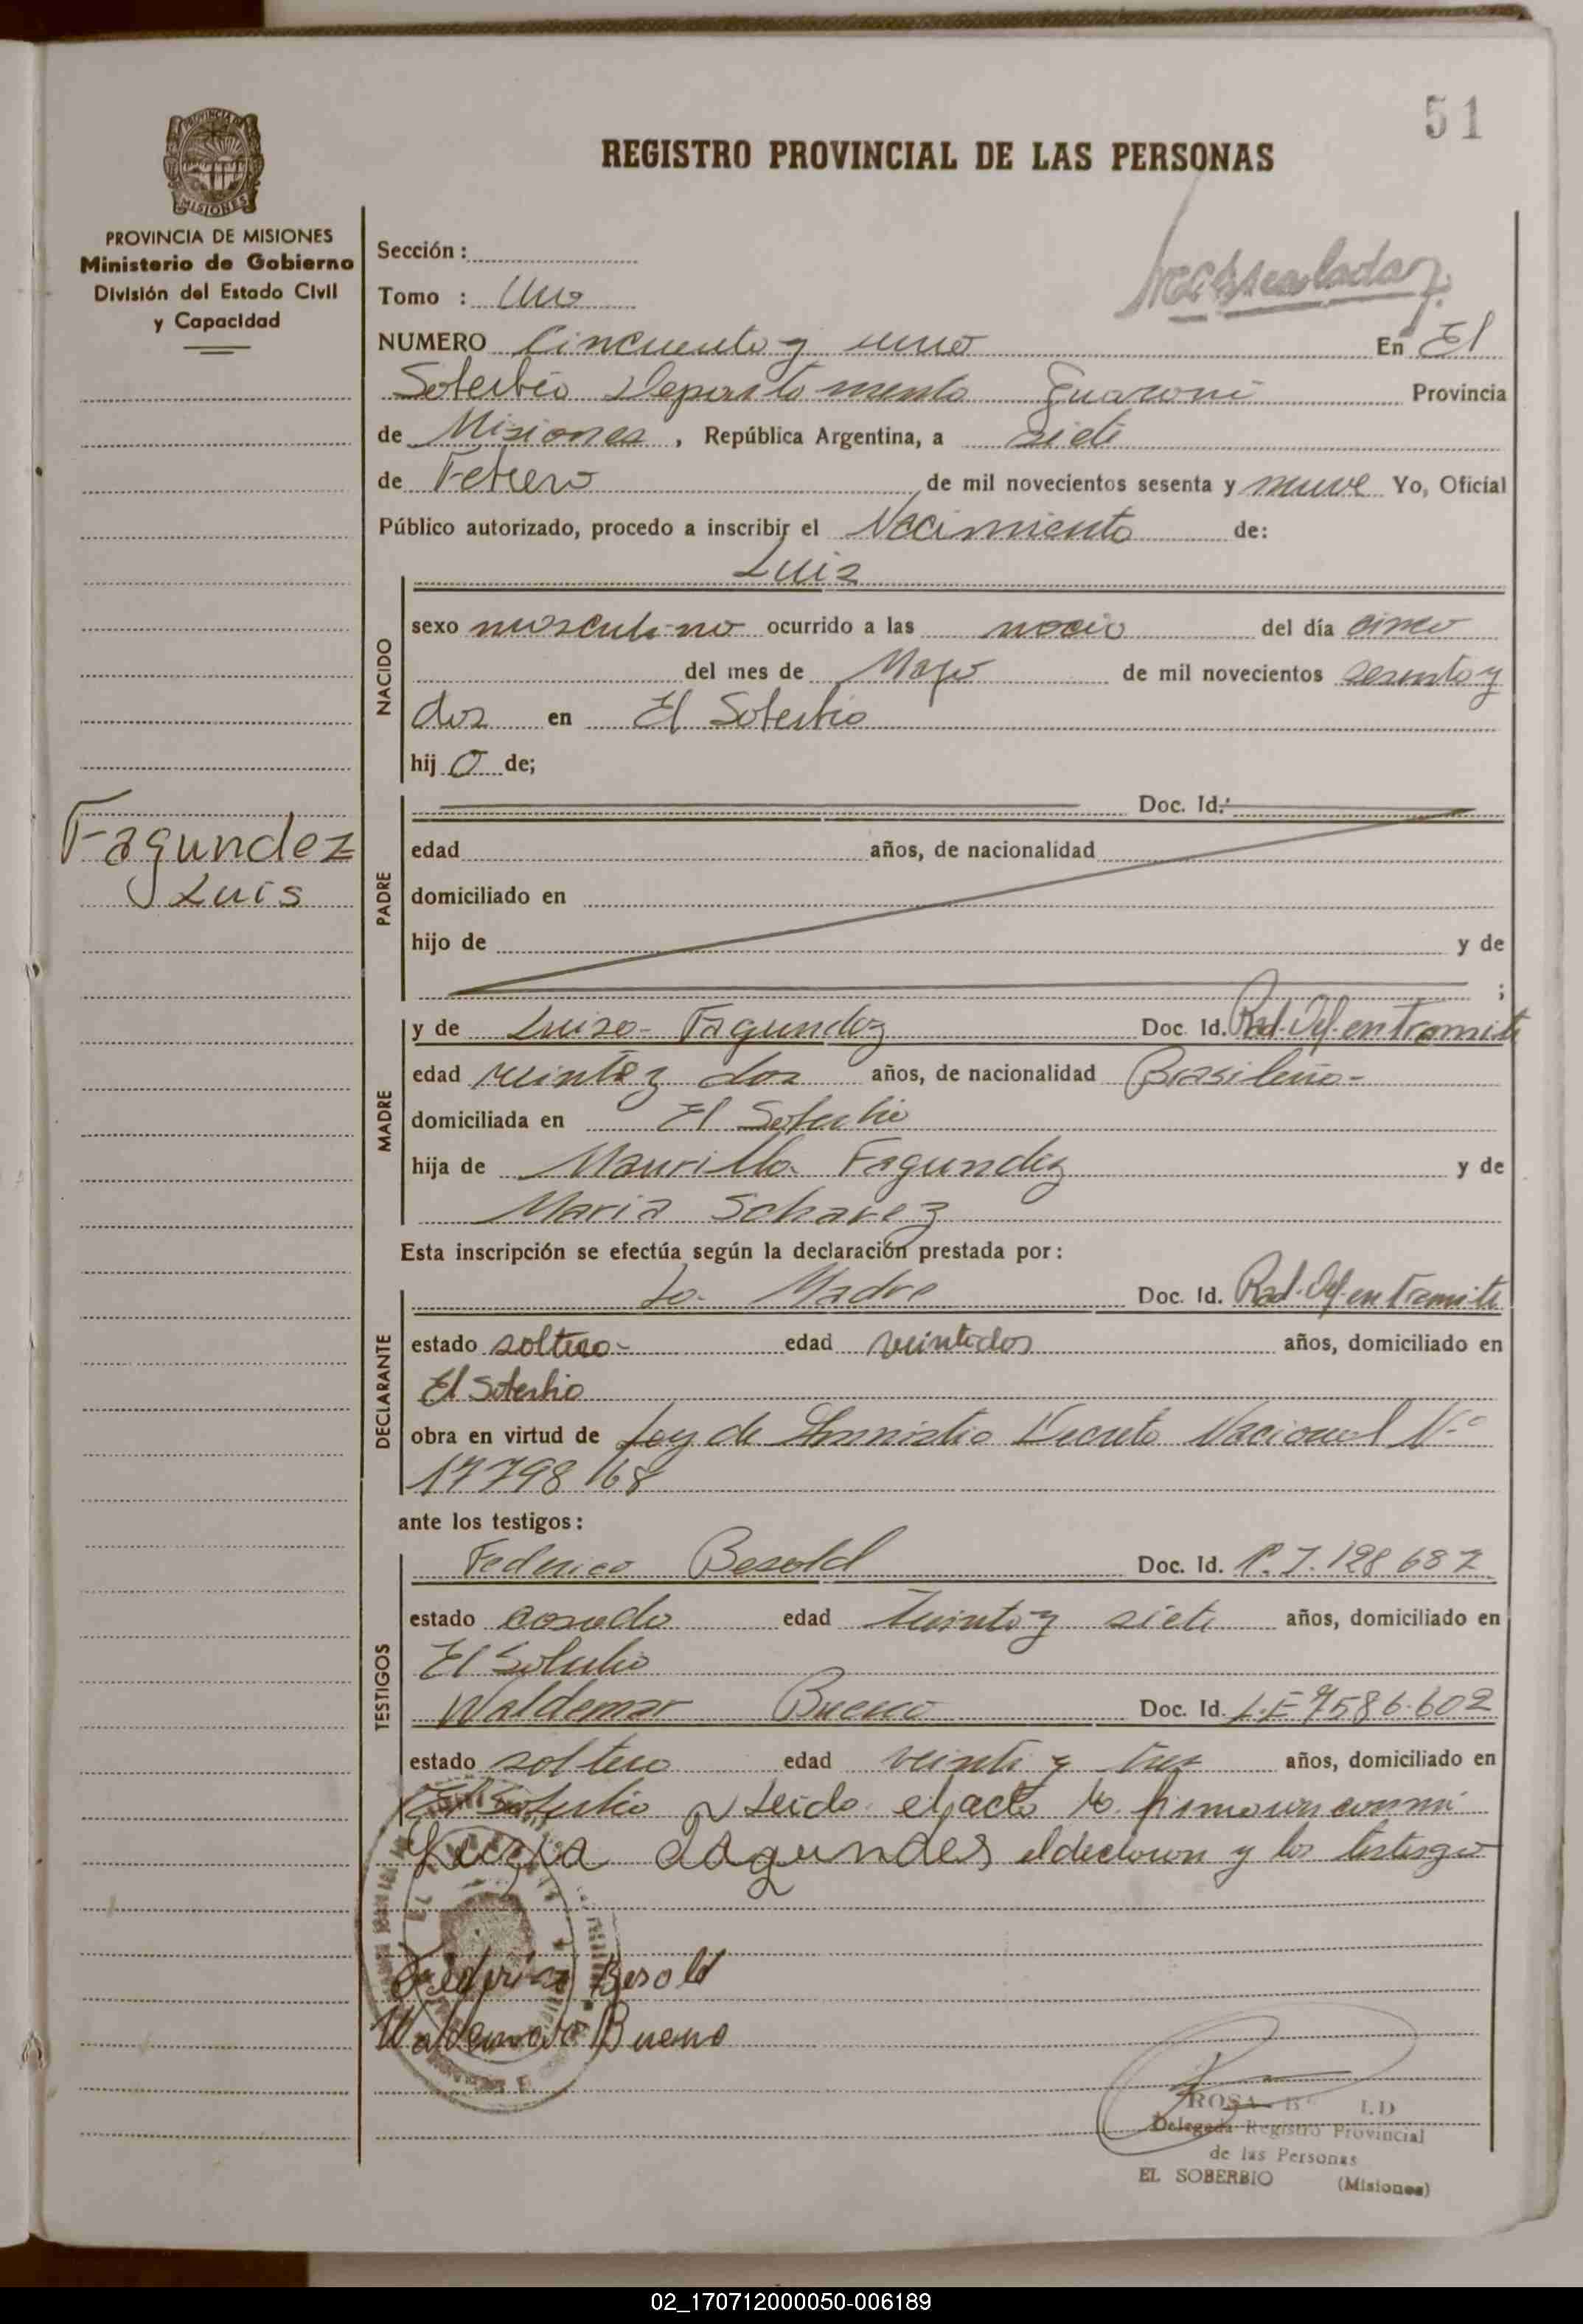 51
REGISTRO PROVINCIAL DE LAS PERSONAS
MISIONES
PROVINCIA DE MISIONES
Ministerio de Gobierno
División del Estado Civil
y Capacidad
Sección:
Tomo : Uno
NUMERO Cincuenta y uno En El
Soberbio Departamento Guarani Provincia
de Misiones, República Argentina, a siete
de Febrero de mil novecientos sesenta y nueve Yo, Oficial
Público autorizado, procedo a inscribir el Nacimiento de:
Luis
NACIDO
sexo masculino ocurrido a las del día cinco
del mes de Mayo de mil novecientos sesenta y
dos en El Soberbio
hij o de;
Fagundez
Luis
PADRE
Doc. Id.
edad años, de nacionalidad
domiciliado en
hijo de y de
;
MADRE
y de Luisa Fagundez Doc. Id. Rad. Def. en Tramite
edad veinte y dos años, de nacionalidad Brasileña-
domiciliada en El Soberbio
hija de Maurillo Fagundez y de
Maria Schavez
Esta inscripción se efectúa según la declaración prestada por:
DECLARANTE
La Madre Doc. Id. Rad. Def. en Tramite
estado soltera- edad veintidos años, domiciliado en
El Soberbio
obra en virtud de Ley de Amnistia Decreto Nacional Nº
17798/68
ante los testigos:
TESTIGOS
Federico Besold Doc. Id. C.I. 128687
estado casado edad treinta y siete años, domiciliado en
El Soberbio
Waldemar Bueno Doc. Id. L.E 7586.602
estado soltero edad veinti y tres años, domiciliado en
El Soberbio Leido el acta lo firma con mi
Luiza Fagundes el declaran y los testigo
Federico Besold
Waldemar Bueno
ROSA
Delegada Registro Provincial
de las Personas
EL SOBERBIO (Misiones)
02_170712000050-006189